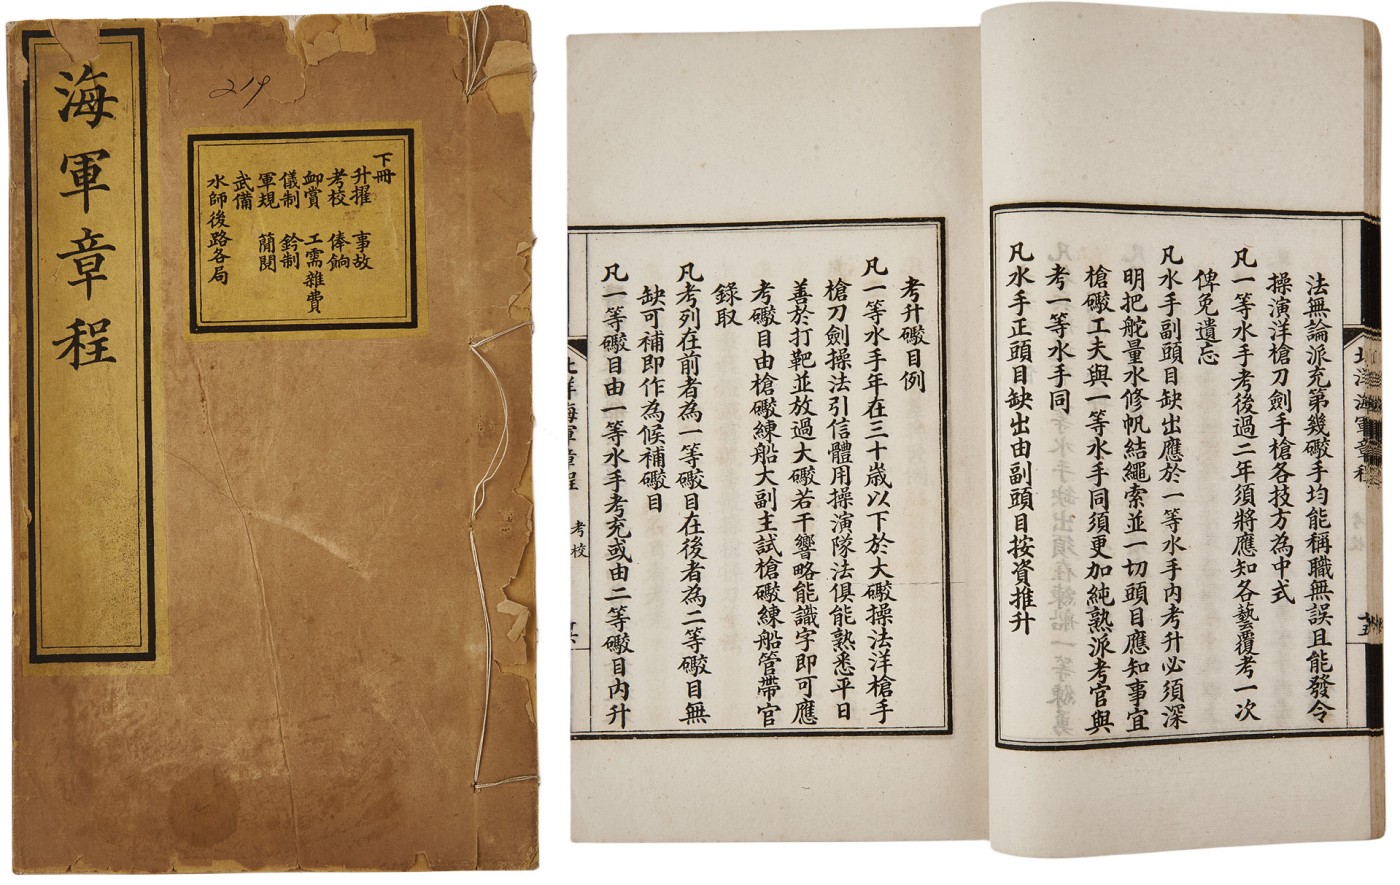 海軍章程
219
下冊
升擢 事故
考校 俸餉
卹賞 工需雜費
儀制 鈐制
軍規 簡閱
武備
水師後路各局
北洋海軍章程 考校
法無論派充第幾礮手均能稱職無誤且能發令
操演洋槍刀劍手槍各技方為中式
凡一等水手考後過二年須將應知各藝覆考一次
俾免遺忘
凡水手副頭目缺出應於一等水手內考升必須深
明把舵量水修帆結繩索並一切頭目應知事宜
槍礮工夫與一等水手同須更加純熟派考官與
考一等水手同
凡水手正頭目缺出由副頭目按資推升
考升礮目例
凡一等水手年在三十歲以下於大礮操法洋槍手
槍刀劍操法引信體用操演隊法俱能熟悉平日
善於打靶並放過大礮若干響略能識字即可應
考礮目由槍礮練船大副主試槍礮練船管帶官
錄取
凡考列在前者為一等礮目在後者為二等礮目無
缺可補即作為候補礮目
凡一等礮目由一等水手考充或由二等礮目內升
北洋海軍章程 考校